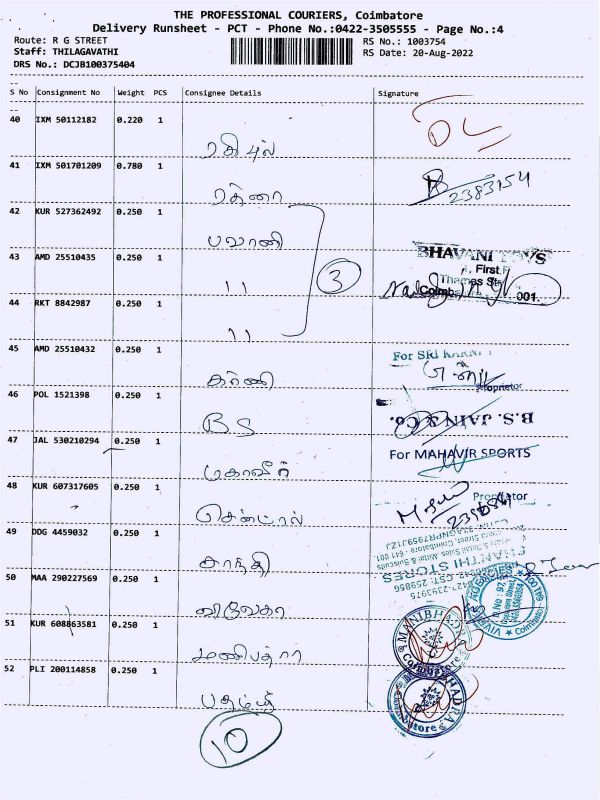 THE PROFESSIONAL COURIERS, Coimbatore
Delivery Runsheet - PCT - Phone No.:0422-3505555 - Page No.:4
Route: R G STREET RS No.: 1003754
Staff: THILAGAVATHI RS Date: 20-Aug-2022
DRS No.: DCJB100375404
S No Consignment No Weight PCS Consignee Details Signature
40 IXM 50112182 0.220 1
41 IXM 501701209 0.780 1
ரத்னா 2383154
42 KUR 527362492 0.250 1
பவானி
43 AMD 25510435 0.250 1 BHAVANI TOYS
11 3 First
Thomas Str
Coimb 001.
44 RKT 8842987 0.250 1
11
45 AMD 25510432 0.250 1 For Sri
கர்ணி
Proprietor
46 POL 1521398 0.250 1
BS B.S. JAIN & Co.
47 JAL 530210294 0.250 1 For MAHAVIR SPORTS
மகாவீர்
48 KUR 607317605 0.250 1 Proprietor
சென்ட்ரல்
49 DDG 4459032 0.250 1
சாந்தி SHANTHI STORES
50 MAA 290227569 0.250 1 AGENCIES
விவேகா Coimbatore
51 KUR 608863581 0.250 1 MANIBHADRA
மணிபத்ரா Coimbatore
52 PLI 200114858 0.250 1 BHADRA
Coimbatore
10